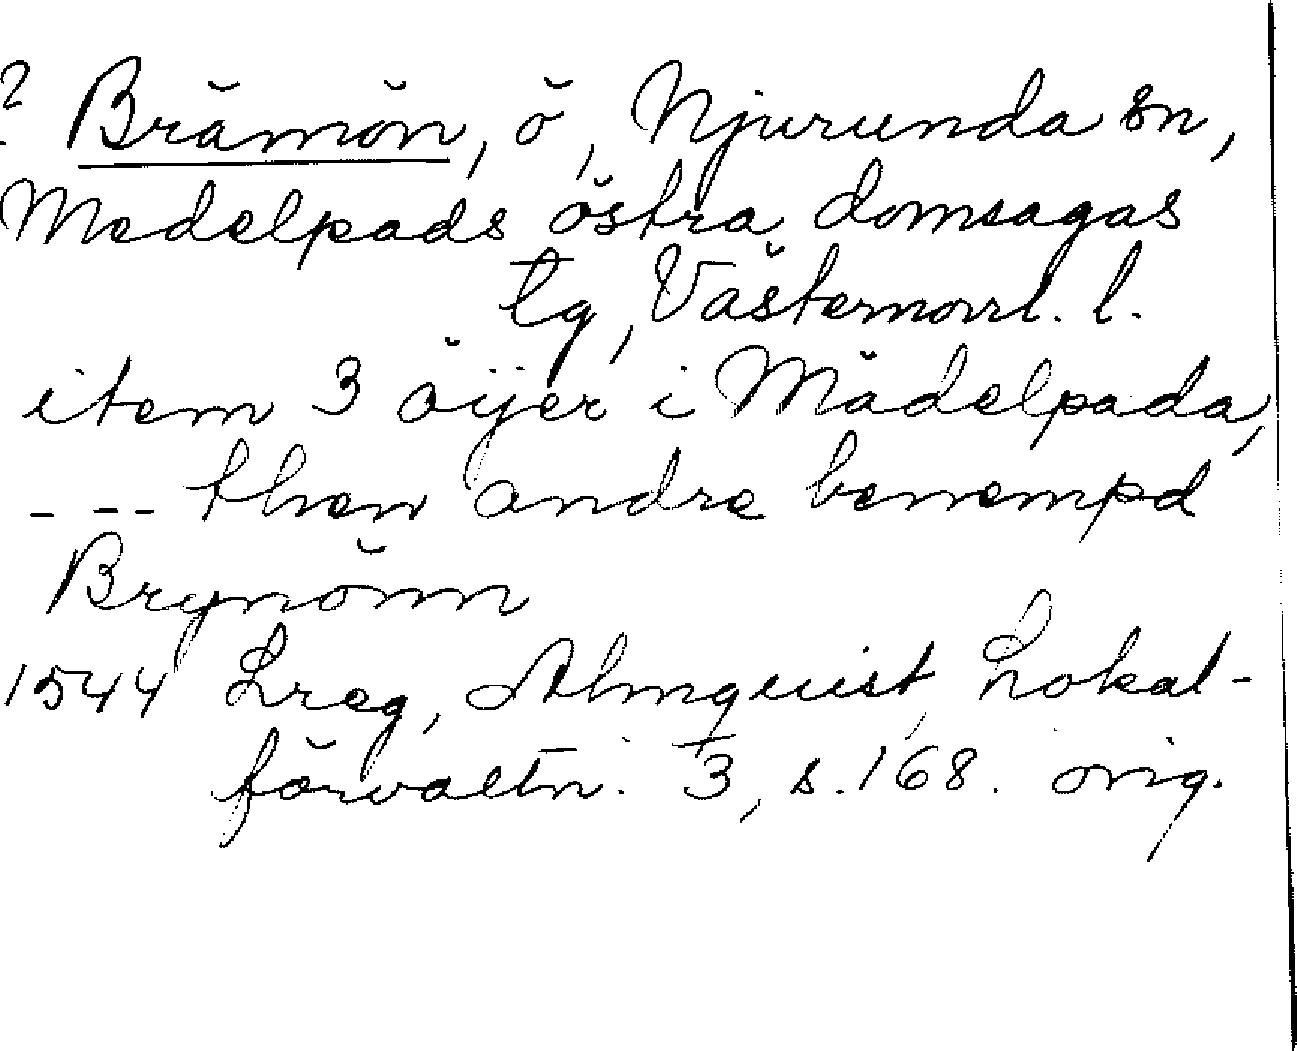 ? Brämön, ö, Njurunda sn,
Medelpads östra domsagas
tg, Västernorrl. l.
item 3 öijer i Mädelpada,
- -- then andre benempd
Brynönn
1544 Lreg, Almquist, Lokal-
förvaltn. 3, s. 168. orig.